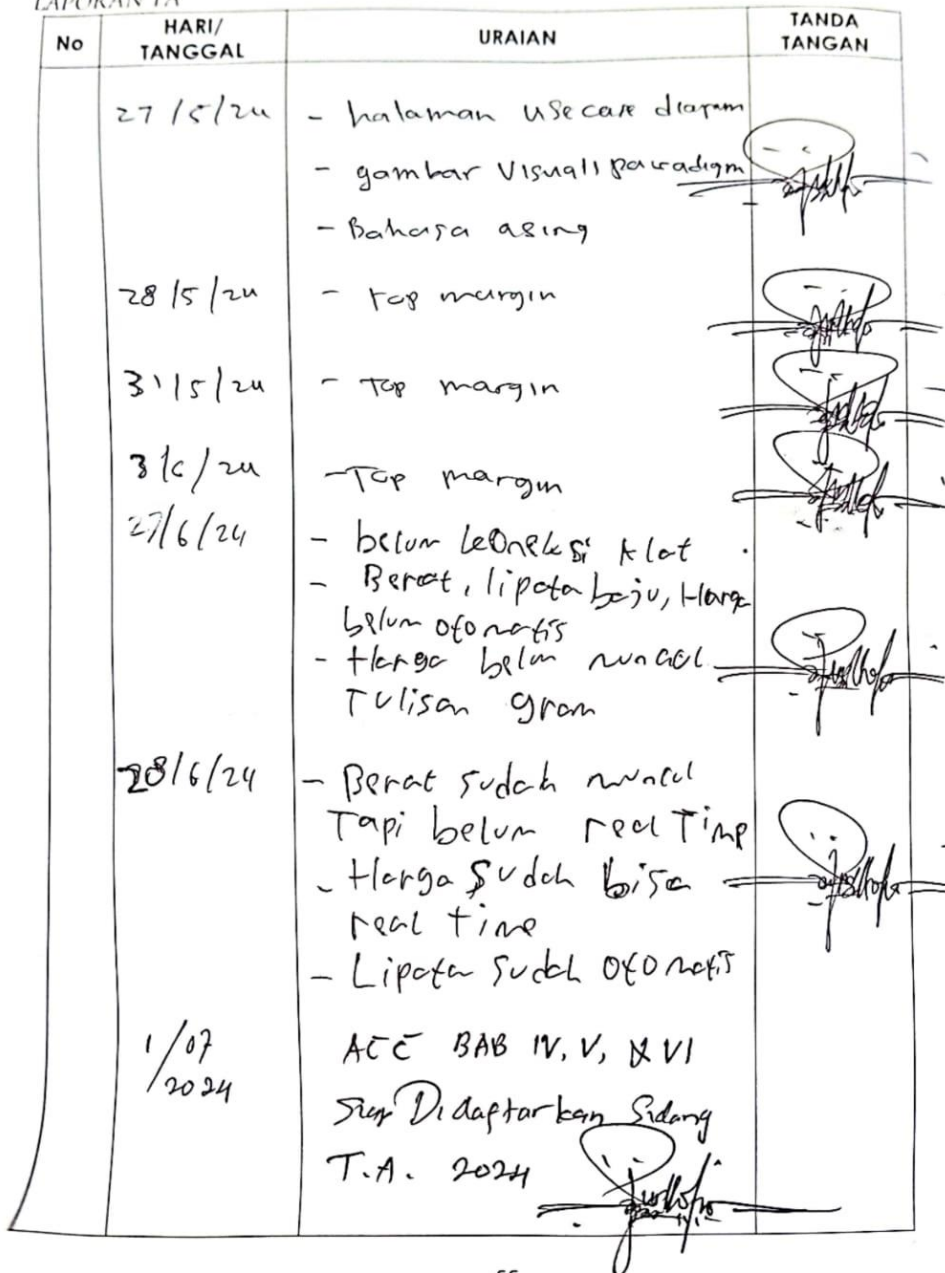 LAPORAN TA
No
HARI/
TANGGAL
URAIAN
TANDA
TANGAN
27/5/24
- halaman usecase diagram
- gambar Visuall paradigm
- Bahasa asing
28/5/24
- top margin
31/5/24
- Top margin
3/6/24
- Top margin
27/6/24
- belum koneksi Alat
- Berat, lipata baju, Harga
belum otomatis
- Harga belum muncul
Tulisan gram
28/6/24
- Berat sudah muncul
Tapi belum real Time
- Harga Sudah bisa
real time
- Lipata sudah otomatis
1/07
/2024
ACC BAB IV, V, & VI
Siap Didaftarkan Sidang
T.A. 2024